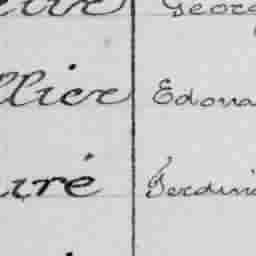 Georg
llier Edoua
uré Ferdin